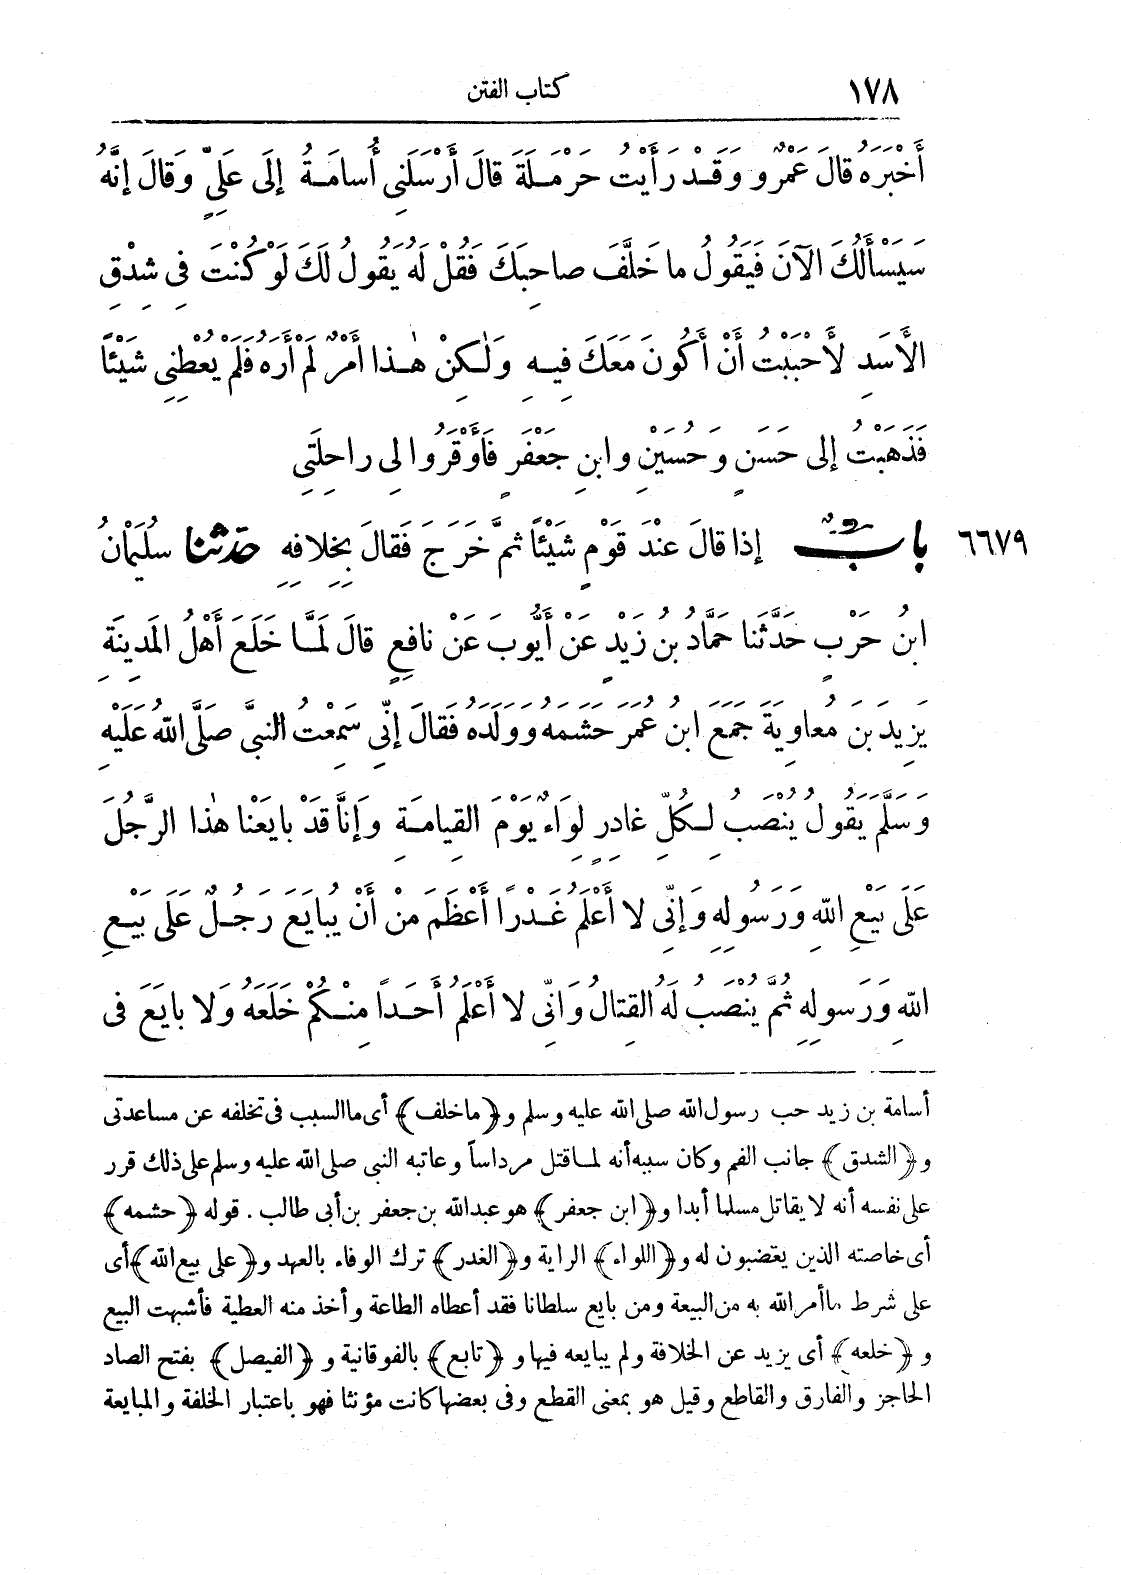 ١٧٨ كتاب الفتن
أَخْبَرَهُ قَالَ عَمْرٌو وَقَدْ رَأَيْتُ حَرْمَلَةَ قَالَ أَرْسَلَنِى أُسَامَةُ إِلَى عَلِيٍّ وَقَالَ إِنَّهُ
سَيَسْأَلُكَ الآنَ فَيَقُولُ مَا خَلَّفَ صَاحِبَكَ فَقُلْ لَهُ يَقُولُ لَكَ لَوْ كُنْتَ فِى شِدْقِ
الأَسَدِ لَأَحْبَبْتُ أَنْ أَكُونَ مَعَكَ فِيهِ وَلٰكِنْ هٰذَا أَمْرٌ لَمْ أَرَهُ فَلَمْ يُعْطِنِى شَيْئًا
فَذَهَبْتُ إِلَى حَسَنٍ وَحُسَيْنٍ وَابْنِ جَعْفَرٍ فَأَوْقَرُوا لِى رَاحِلَتِى
٦٦٧٩ بابٌ إِذَا قَالَ عِنْدَ قَوْمٍ شَيْئًا ثُمَّ خَرَجَ فَقَالَ بِخِلَافِهِ حدثنا سُلَيْمَانُ
ابْنُ حَرْبٍ حَدَّثَنَا حَمَّادُ بْنُ زَيْدٍ عَنْ أَيُّوبَ عَنْ نَافِعٍ قَالَ لَمَّا خَلَعَ أَهْلُ المَدِينَةِ
يَزِيدَ بْنَ مُعَاوِيَةَ جَمَعَ ابْنُ عُمَرَ حَشَمَهُ وَوَلَدَهُ فَقَالَ إِنِّى سَمِعْتُ النَّبِىَّ صَلَّى اللهُ عَلَيْهِ
وَسَلَّمَ يَقُولُ يُنْصَبُ لِكُلِّ غَادِرٍ لِوَاءٌ يَوْمَ القِيَامَةِ وَإِنَّا قَدْ بَايَعْنَا هٰذَا الرَّجُلَ
عَلَى بَيْعِ اللهِ وَرَسُولِهِ وَإِنِّى لَا أَعْلَمُ غَدْرًا أَعْظَمَ مِنْ أَنْ يُبَايَعَ رَجُلٌ عَلَى بَيْعِ
اللهِ وَرَسُولِهِ ثُمَّ يُنْصَبُ لَهُ القِتَالُ وَإِنِّى لَا أَعْلَمُ أَحَدًا مِنْكُمْ خَلَعَهُ وَلَا بَايَعَ فِى
أسامة بن زيد حب رسول الله صلى الله عليه وسلم و﴿ما خلف﴾ أى ما السبب فى تخلفه عن مساعدتى
و﴿الشدق﴾ جانب الفم وكان سببه أنه لما قتل مرداساً وعاتبه النبى صلى الله عليه وسلم على ذلك قرر
على نفسه أنه لا يقاتل مسلما أبدا و﴿ابن جعفر﴾ هو عبد الله بن جعفر بن أبى طالب . قوله ﴿حشمه﴾
أى خاصته الذين يغضبون له و﴿اللواء﴾ الراية و﴿الغدر﴾ ترك الوفاء بالعهد و﴿على بيع الله﴾ أى
على شرط ما أمر الله به من البيعة ومن بايع سلطانا فقد أعطاه الطاعة وأخذ منه العطية فأشبهت البيع
و﴿خلعه﴾ أى يزيد عن الخلافة ولم يبايعه فيها و﴿تابع﴾ بالفوقانية و﴿الفيصل﴾ بفتح الصاد
الحاجز والفارق والقاطع وقيل هو بمعنى القطع وفى بعضها كانت مؤنثا فهو باعتبار الخلفة والمبايعة